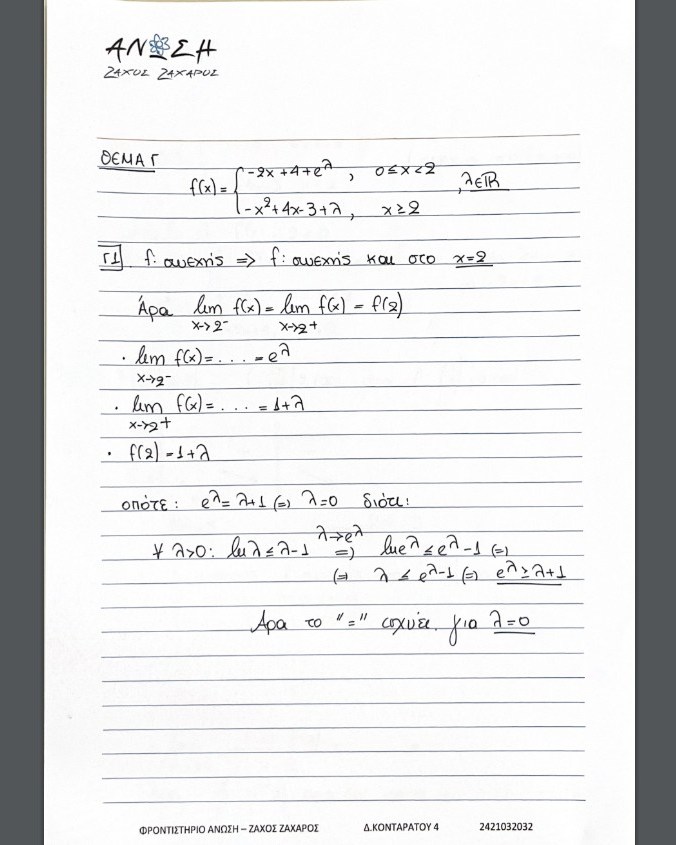 ΑΝΩΣΗ
ΖΑΧΟΣ ΖΑΧΑΡΟΣ
ΘΕΜΑ Γ
f(x) = { -2x+4+e^λ , 0≤x<2
-x²+4x-3+λ, x≥2 , λ∈ℝ
Γ1 f: συνεχής => f: συνεχής και στο x=2
Άρα lim f(x) = lim f(x) = f(2)
x->2⁻ x->2⁺
· lim f(x) = . . . . = e^λ
x->2⁻
· lim f(x) = . . . . = 1+λ
x->2⁺
· f(2) = 1+λ
οπότε: e^λ = λ+1 (=) λ=0 διότι:
∀ λ>0: lnλ ≤ λ-1 λ→e^λ =) lne^λ ≤ e^λ-1 (=)
(=) λ ≤ e^λ-1 (=) e^λ ≥ λ+1
Άρα το "=" ισχύει για λ=0
ΦΡΟΝΤΙΣΤΗΡΙΟ ΑΝΩΣΗ – ΖΑΧΟΣ ΖΑΧΑΡΟΣ Δ.ΚΟΝΤΑΡΑΤΟΥ 4 2421032032